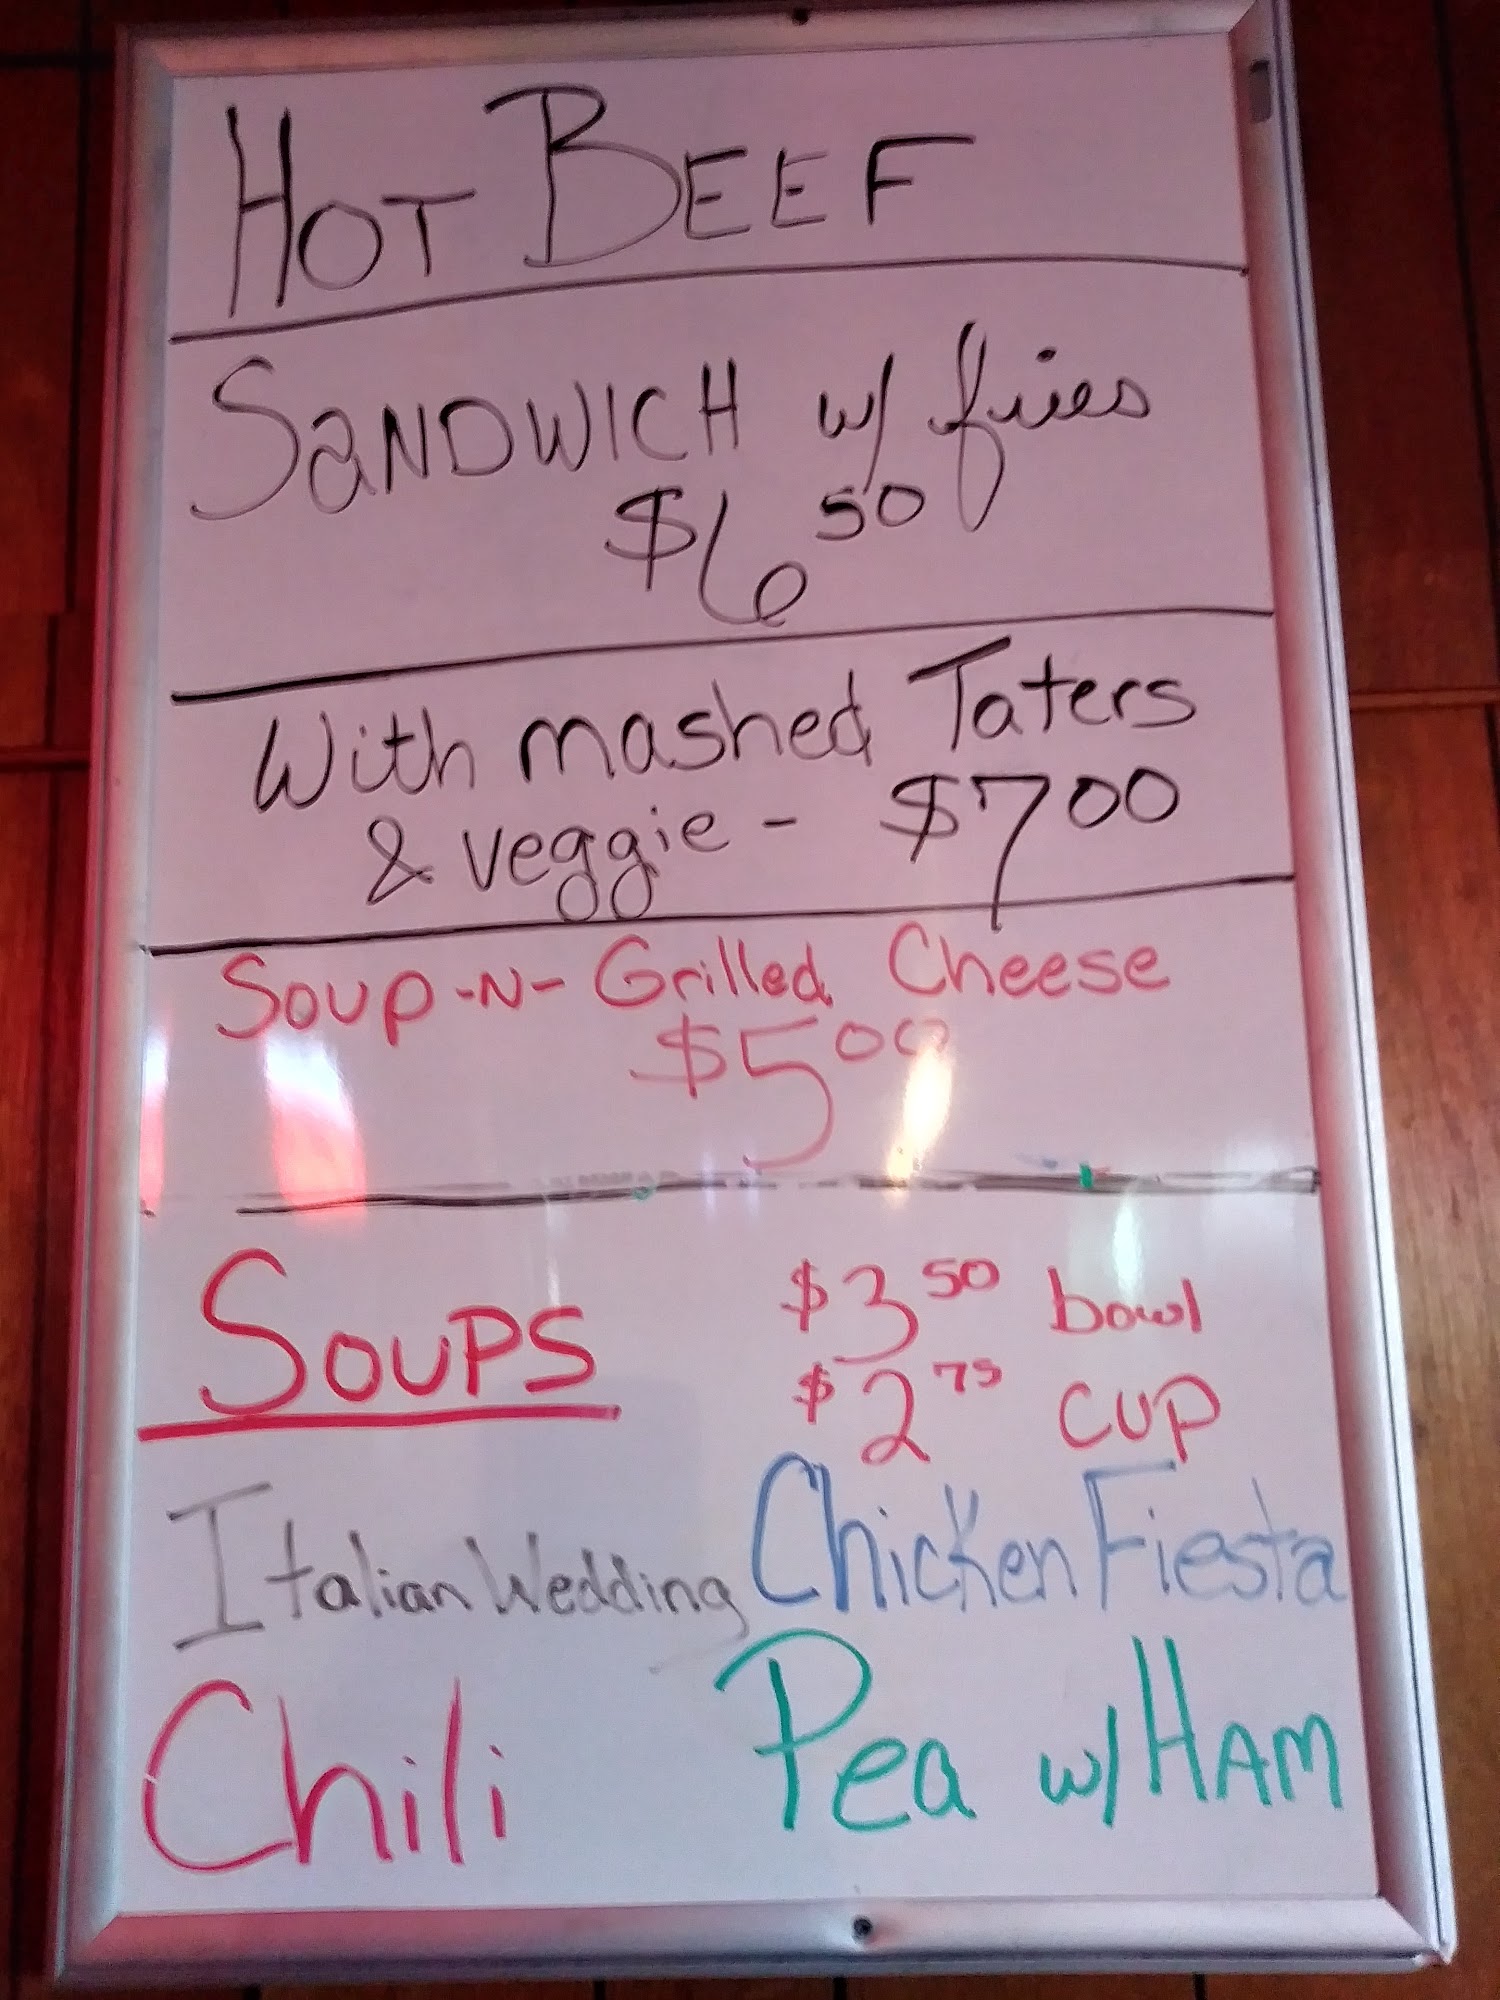 HOT BEEF
SANDWICH w/ fries
$6 50
With mashed Taters
& veggie - $7 00
Soup -N- Grilled Cheese
$5 00
SOUPS
$3 50 bowl
$2 75 CUP
Italian Wedding
Chicken Fiesta
Chili
Pea w/ HAM